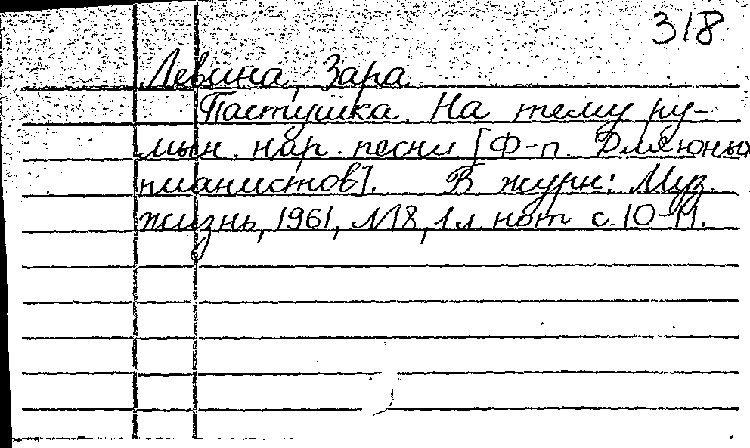 318
Левина, Зара
Пастушка. На тему ру-
мын. нар. песни [Ф-п. Для юных
пианистов]. В журн: Муз.
жизнь, 1961, №18, 1 л. нот с. 10-11.